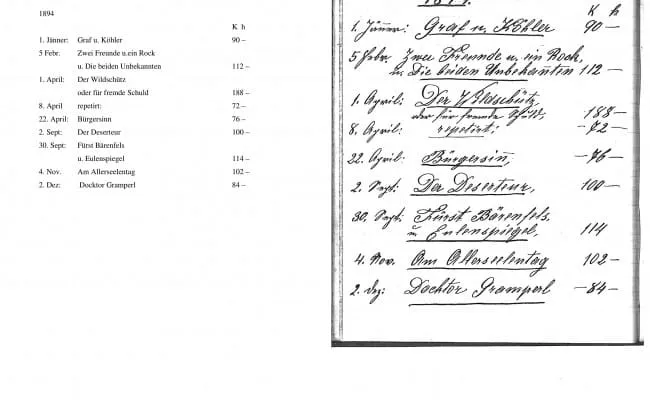 1894
K h
1. Jänner: Graf u. Köhler 90 –
5 Febr: Zwei Freunde u.ein Rock
u. Die beiden Unbekannten 112 –
1. April: Der Wildschütz
oder für fremde Schuld 188 –
8. April repetirt: 72 –
22. April: Bürgersinn 76 –
2. Sept: Der Deserteur 100 –
30. Sept: Fürst Bärenfels
u. Eulenspiegel 114 –
4. Nov. Am Allerseelentag 102 –
2. Dez: Docktor Gramperl 84 –
K h
1. Jänner: Graf u. Köhler 90 –
5 Febr. Zwei Freunde u. ein Rock,
u. Die beiden Unbekannten 112 –
1. April: Der Wildschütz
oder für fremde Schuld. 188 –
8. April: repetirt: – 72 –
22. April: Bürgersin̄, – 76 –
2. Sept: Der Deserteur, 100 –
30. Sept: Fürst Bärenfels,
u. Eulenspiegel, 114
4. Nov. Am Allerseelentag 102 –
2. Dez: Docktor Gramperl – 84 –